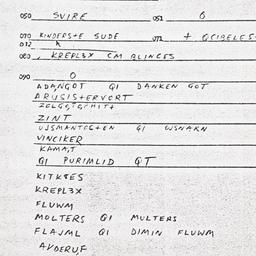 050 SVIRE 051 0
070 KINDERSTE SUDE 071 + QCIBELES
072
080 , KREPL3X CM BLINCES
090 0
ADANGOT QI DANKEN GOT
ARUSIS+ERVORT
ZINT
UJSMANTES+EN QI WSNAKN
VINCIKER
KAMA,T
QI PURIMLID QT
KITKSES
KREPL3X
FLUWM
MOLTERS QI MULTERS
FLAJML QI DIMIN FLUWM
AVDERU,F